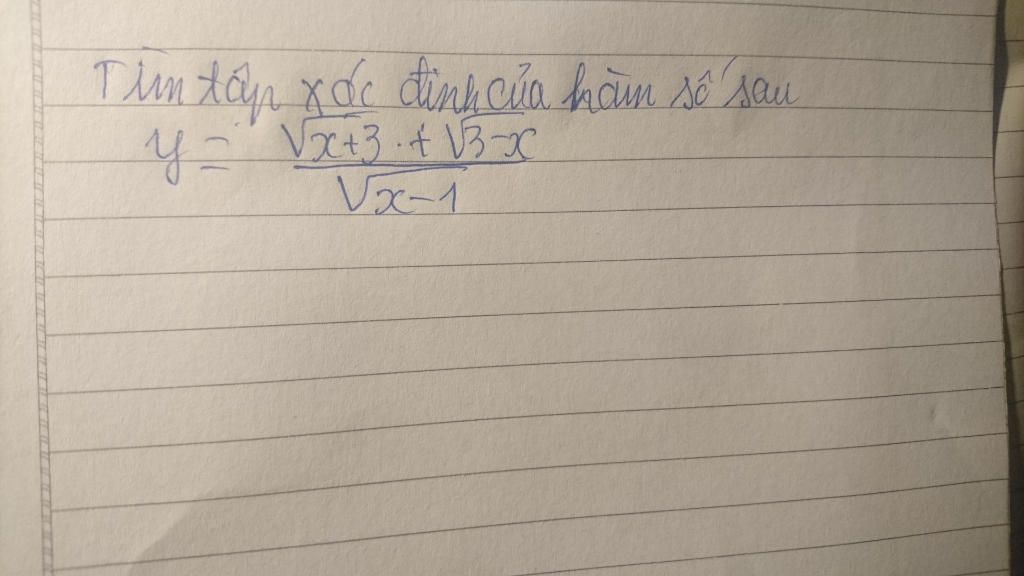 Tìm tập xác định của hàm số sau
y = \frac{\sqrt{x+3} + \sqrt{3-x}}{\sqrt{x-1}}